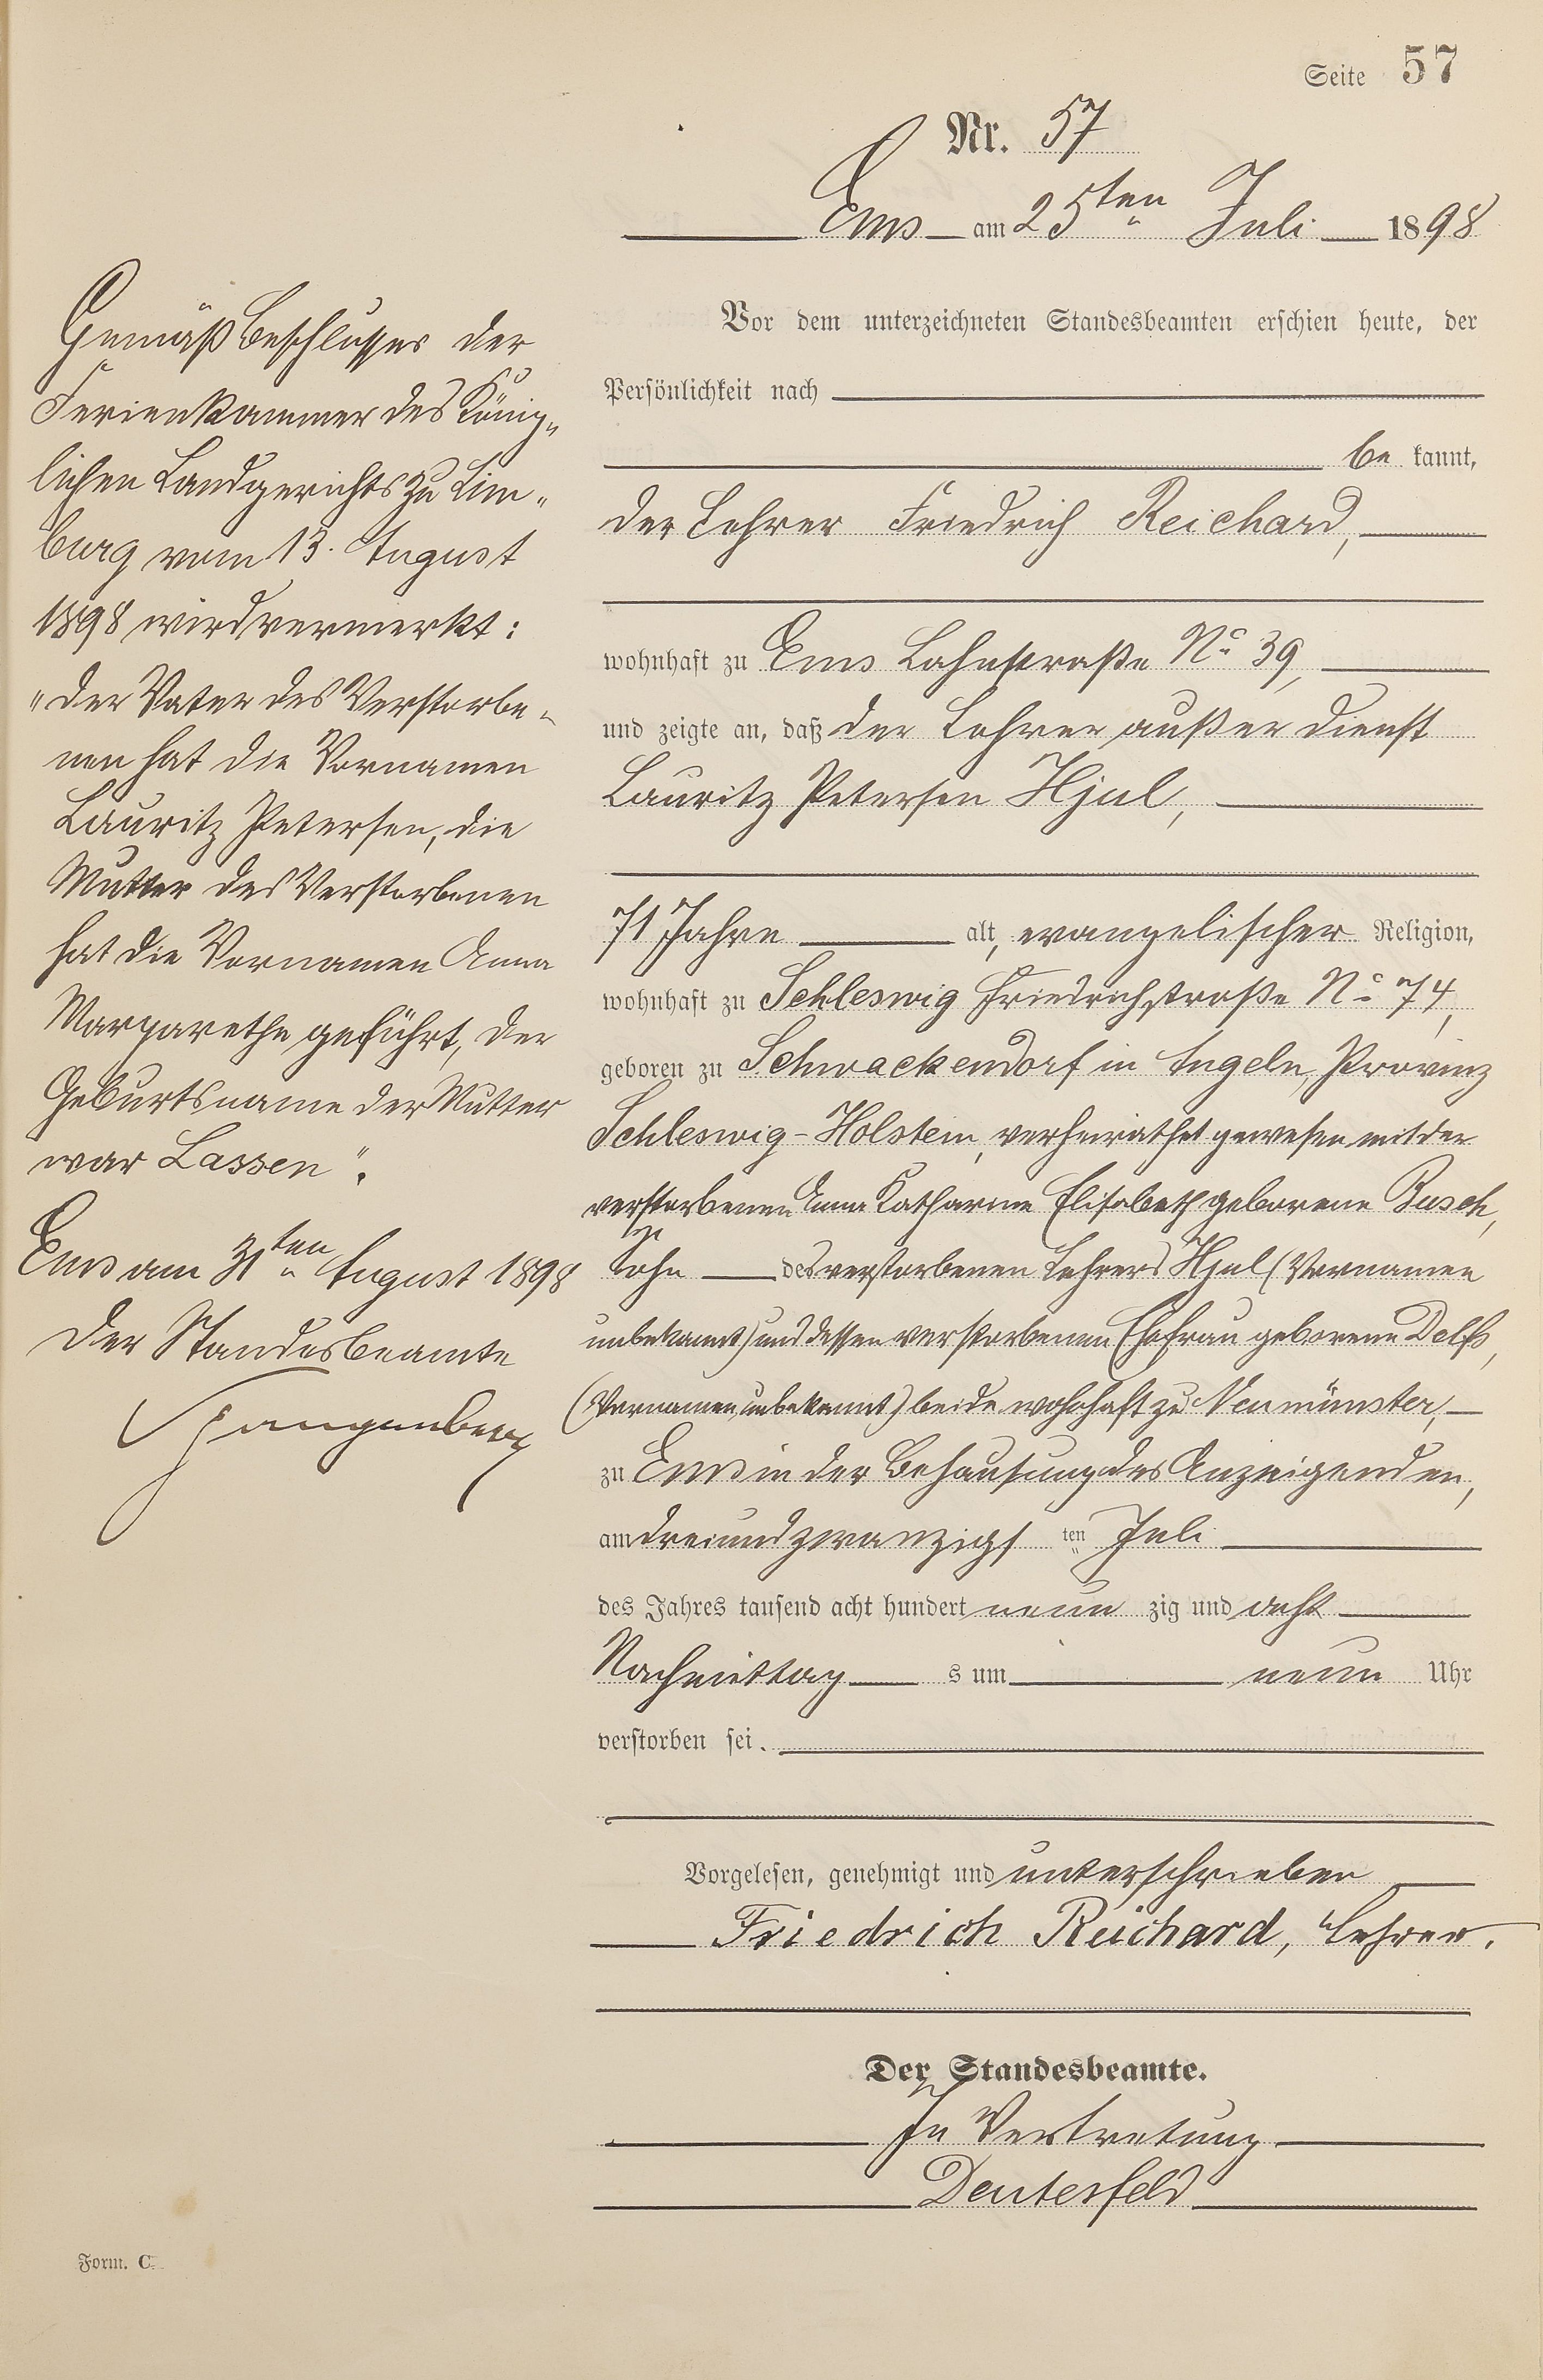 Seite 57
Nr. 57
Ems am 25ten Juli 1898
Vor dem unterzeichneten Standesbeamten erschien heute, der
Persönlichkeit nach
be kannt,
der Lehrer Friedrich Reichard,
wohnhaft zu Ems Lahnstraße No 39,
und zeigte an, daß der Lehrer außer Dienst
Lauritz Petersen Hjul,
71 Jahre alt, evangelischer Religion,
wohnhaft zu Schleswig Friedrichstraße No 74,
geboren zu Schwackendorf in Angeln, Provinz
Schleswig-Holstein, verheirathet gewesen mit der
verstorbenen Anna Katharina Elisabeth geborene Busch,
Sohn des verstorbenen Lehrers Hjul (Vornamen
unbekannt) und dessen verstorbenen Ehefrau geborene Delfs,
(Vornamen unbekannt) beide wohnhaft zu Neumünster,
zu Ems in der Behausung des Anzeigenden,
am dreiundzwanzigs ten Juli
des Jahres tausend acht hundert neun zig und acht
Nachmittag s um neun Uhr
verstorben sei.
Vorgelesen, genehmigt und unterschrieben
Friedrich Reichard, Lehrer.
Der Standesbeamte.
In Vertretung
Deutesfeld
Gemäß Beschlusses der
Ferienkammer des König„
lichen Landgerichts zu Lim„
burg vom 13. August
1898 wird vermerkt:
„Der Vater des Verstorbe„
nen hat die Vornamen
Lauritz Petersen, die
Mutter des Verstorbenen
hat die Vornamen Anna
Margarethe geführt, der
Geburtsname der Mutter
war Lassen".
Ems am 31ten August 1898
Der Standesbeamte
Spangenberg
Form. C.